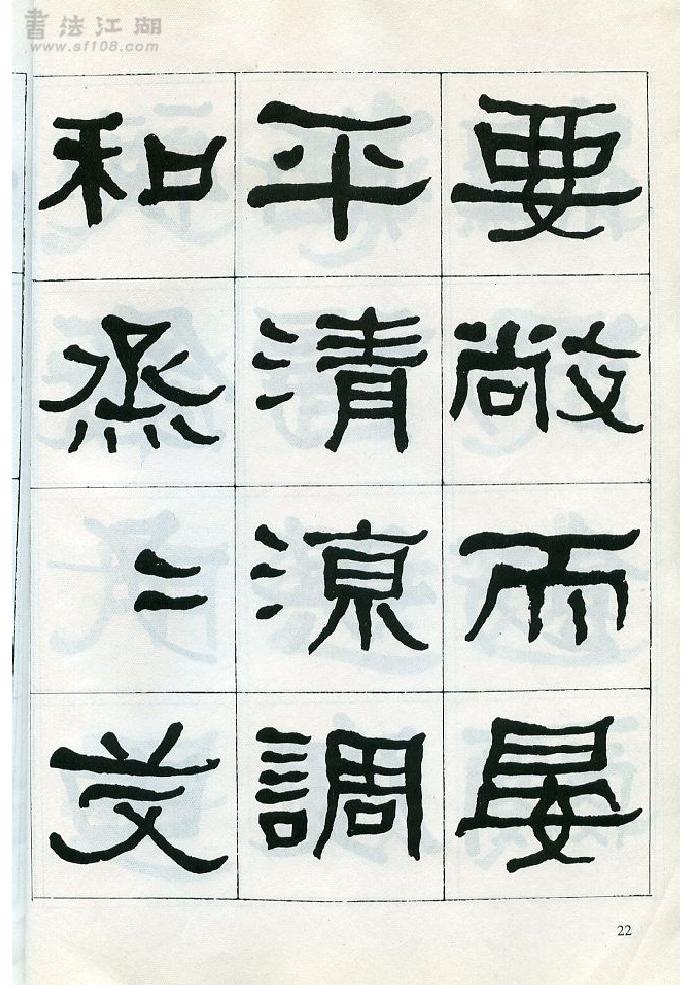 書法江湖
www.sf108.com
要敞而晏
平清涼調
和烝〻艾
22